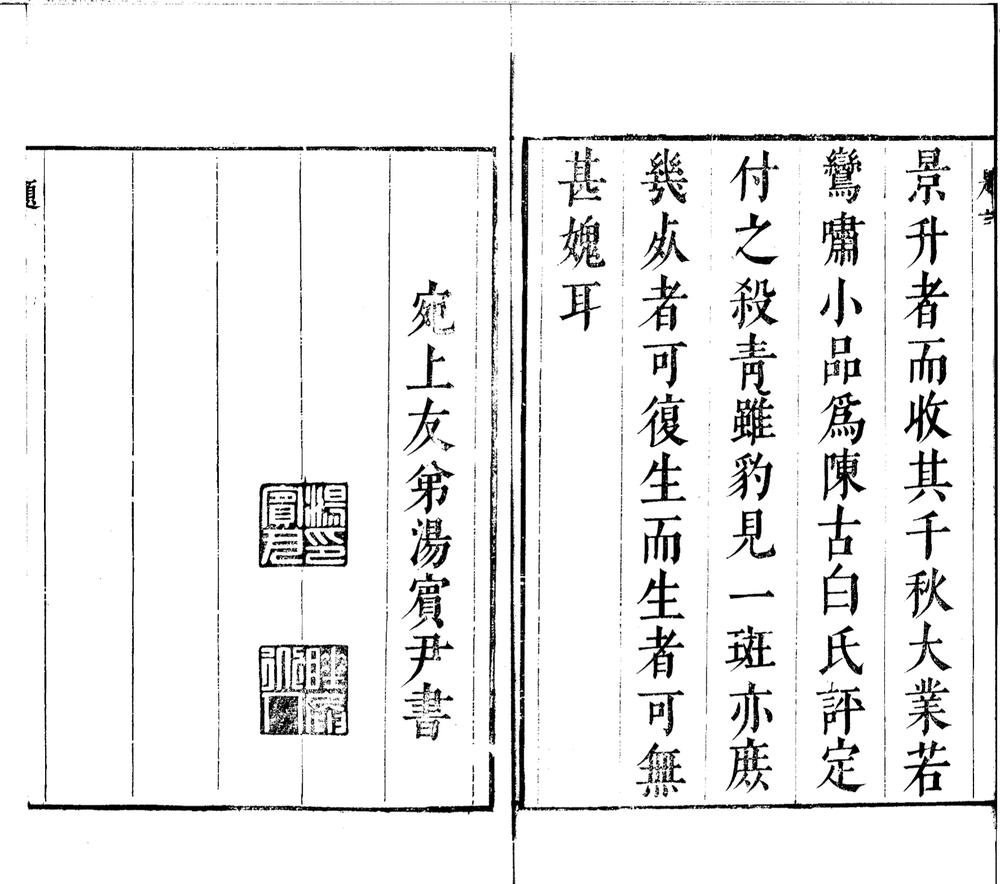 景升者而收其千秋大業若
鸞嘯小品爲陳古白氏評定
付之殺青雖豹見一斑亦庶
幾㱙者可復生而生者可無
甚媿耳
宛上友弟湯賓尹書
湯賓尹印
題